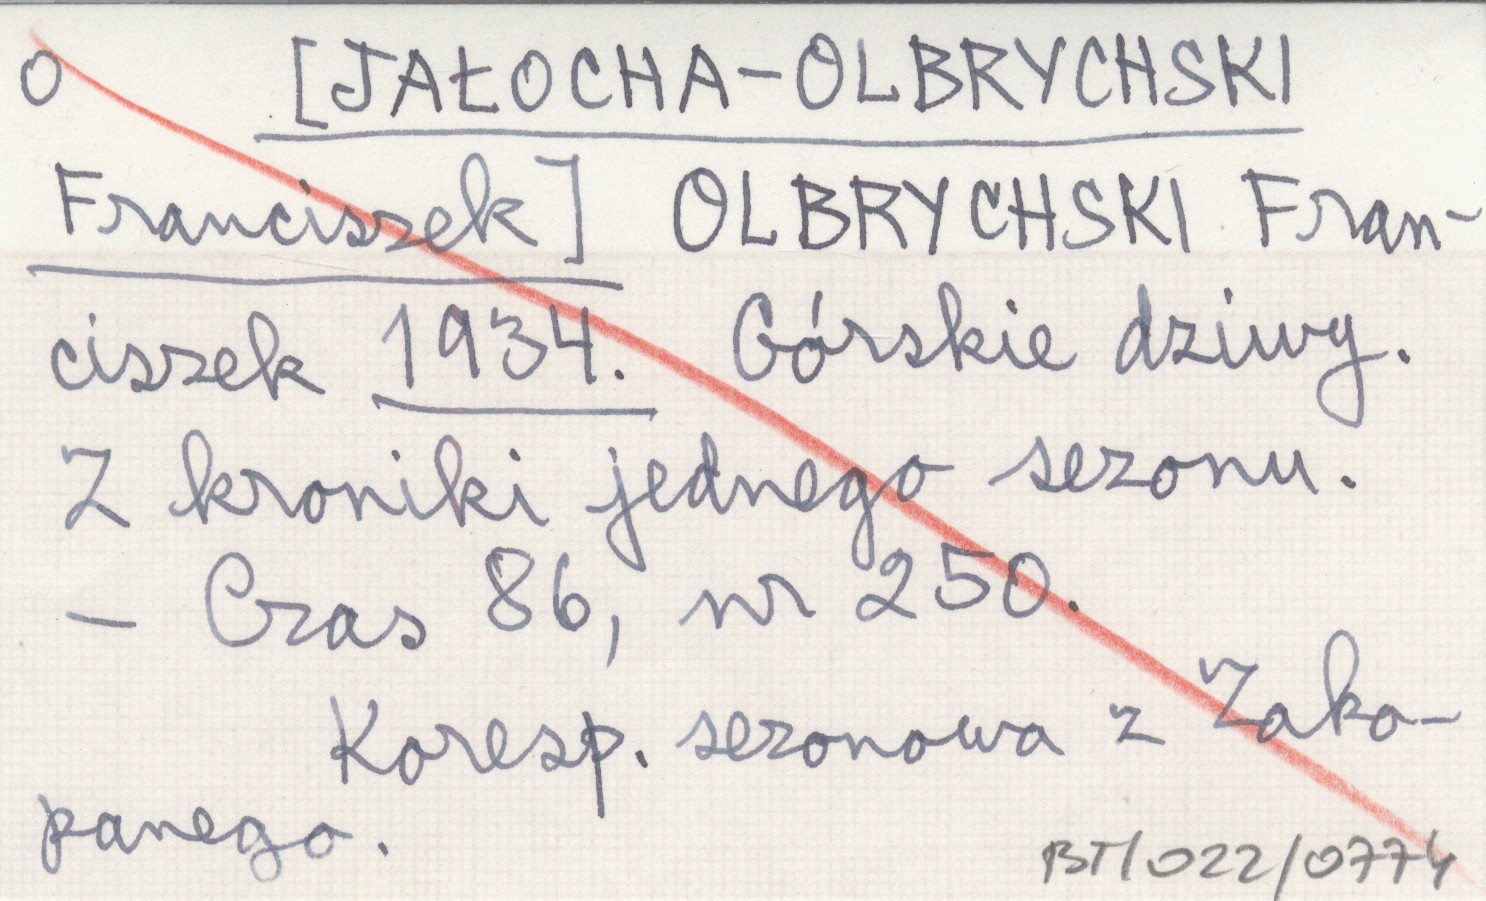 O [JAŁOCHA-OLBRYCHSKI
Franciszek] OLBRYCHSKI Fran-
ciszek 1934. Górskie dziwy.
Z kroniki jednego sezonu.
- Czas 86, nr 250.
Koresp. sezonowa z Zako-
panego.
BT/022/0774